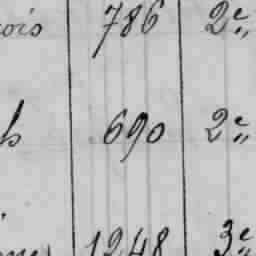 ois 786 2e„
s 690 2e„
1248 3e„